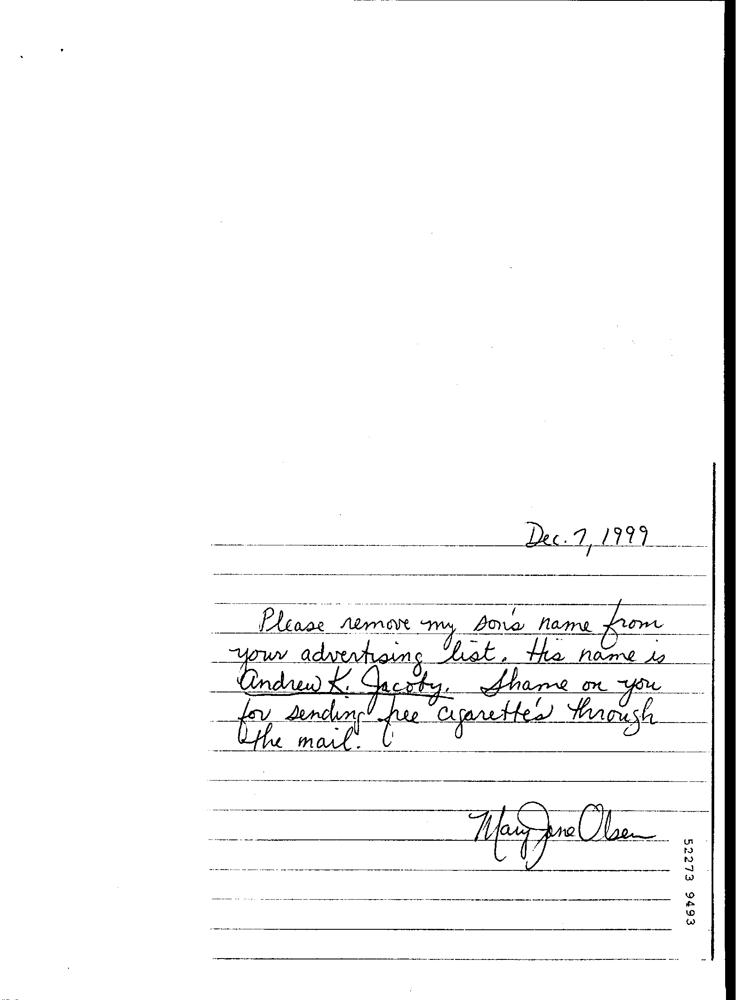 Dec. 7, 1999
Please remove my son's name from
your advertising list. His name is
Andrew K. Jacoby. Shame on you
for sending free cigarette's through
the mail.
Mary Jane Olsen
52273 9493